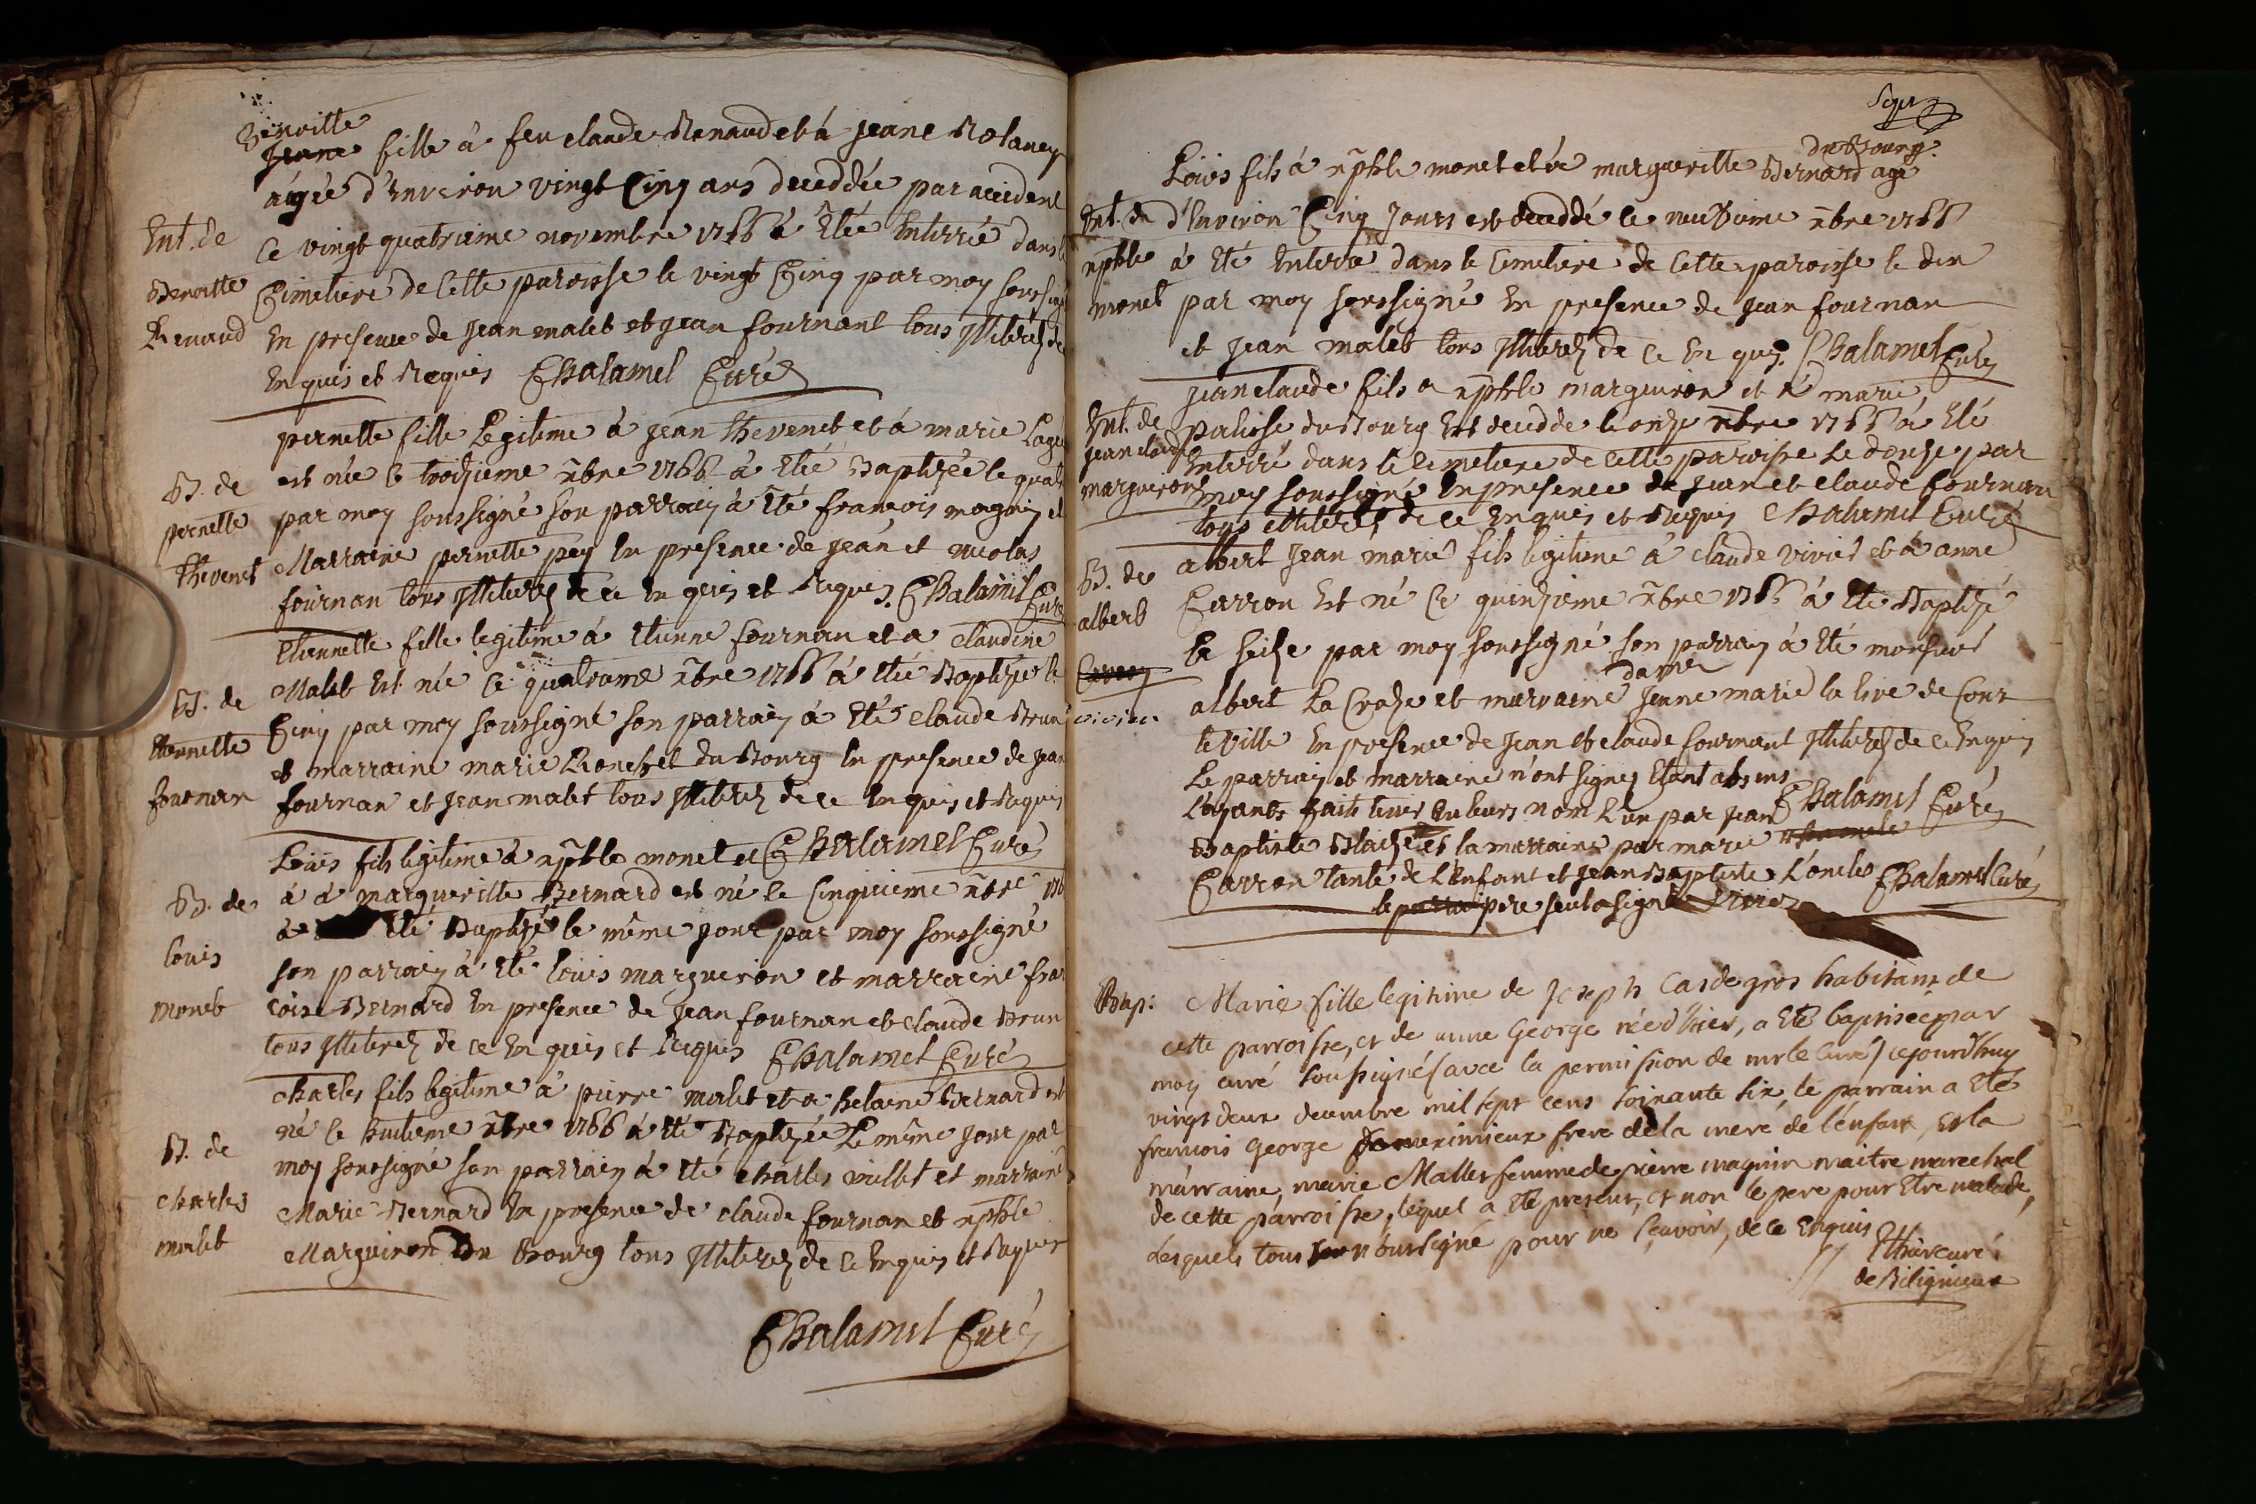 Benoitte
Jeane fille à feu claude Renaud et à jeane Rolancy
aigée d'Environ vingt Cinq ans deceddée par accident
Ent. de
le vingt quatrieme novembre 1766 à Etée Enterrée dans le
Benoitte
Cimetiere de Cette paroisse le vingt Cinq par moy soussigné
Renaud
En presence de Jean malet et jean fournant tous Illiterez de
Enquis et Requis Chalamel Curé
pernette fille Legitime à jean thevenet et à marie
B. de
est née le troizieme xbre 1766 à Etée Baptizée le quatre
pernette
par moy soussigné son parrain à Eté francois magnin et
thevenet
Marraine pernette pey En presence de jean et nicolas
fournan tous Illiterez de ce En quis et Requis. Chalamel Curé
Etiennette fille legitime à Etienne fournan et a Claudine
B. de
Malet Est née Ce quatrieme xbre 1766 à Etée Baptizée le
Etiennette
Cinq par moy soussigné son parrain à Eté claude Brun
fournan
et marraine marie Ronchet du Bourg En presence de jean
fournan et jean malet tous Illiterez de ce En quis et Requis
Loüis fils legitime à xphle monet et Chalamel Curé
B. de
à à margueritte Bernard est né le Cinquieme xbre 176
louis
à Eté Baptizé le même jour par moy soussigné
monet
son parrain à Eté loüis margueron et marraine fran
coise Bernard En presence de jean fournan et claude Brun
tous Illiterez de ce En quis et Requis Chalamel Curé
charles fils legitime à pierre malet et a helaine Bernard est
B. de
né le huitieme xbre 1766 à Eté Baptizée Le même jour par
charles
moy soussigné son parrain à Eté charles millet et marraine
malet
Marie Bernard En presence de claude fournan et xphle
Margueron Du Bourg tous Illiterez de ce Enquis et Requis
Chalamel Curé
du Bourg
Loüis fils à xphle monet et à margueritte Bernard age
Ent. de
d'Environ Cinq Jours est deceddé le neuvieme xbre 1766
xphle
à Eté Enterré dans le Cimetiere de Cette paroisse le dix
monet
par moy soussigné En presence de jean fournan
et jean malet tous Illiterez de ce En quis. Chalamel Curé
jean claude fils a xphle margueron et à marie
Ent. de
palisse du Bourg Est deceddé le onze xbre 1766 à Eté
jean claude
Enterré dans le Cimetiere de Cette paroisse Le douze par
margueron
moy soussigné En presence de jean et claude fournan
tous Illiterez de ce Enquis et Requis Chalamel Curé
albert Jean marie fils legitime à claude vivier et à anne
B. de
Carron Est né Ce quinzieme xbre 1766 à Eté Baptizé
albert
le seize par moy soussigné son parrain à Eté monsieur
Carron
dame
albert La Croze et marraine jeanne marie la live de Cour
vivier
teville En presence de jean et claude fournant Illiterez de ce Enquis
Le parrain et marraine n'ont signez Etant absens
L'ayants faits tenir En leurs nom L'un par jean Chalamel Curé
Baptiste Blaize et la marraine par marie
Carron tante de L'Enfant et jean Baptiste L'oncle Chalamel Curé
le pere seul a signé Vivier
Bap:
Marie fille legitime de Joseph Cardegros habitant de
cette parroisse, et de anne George née d'hier, a Eté baptisée par
moy curé soussigné (avec la permission de mr le Curé) cejourd'huy
vingt deux decembre mil sept cens soixante six, le parrain a Eté
francois George frere de la mere de l'enfant, et la
marraine, marie Mallet femme de pierre magnin maitre marechal
de cette parroisse, lequel a Eté present, et non le pere pour Etre malade,
Lesquels tous n'ont signé pour ne sçavoir, de ce Enquis
curé
de Biligneux